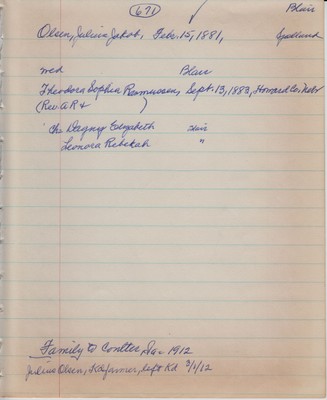 671
Blair
Olsen, Julius Jakob, Feb. 15, 1881,
wed Blair
Theodora Sophia Rasmussen, Sept. 13, 1883, Howard Co. Nebr
(Rev. A R & )
Chr Dagny Elizabeth Blair
Leonora Rebekah "
Family to Coulter, Ia - 1912
Julius Olsen, Kdfarmer, dept Kd 3/1/12